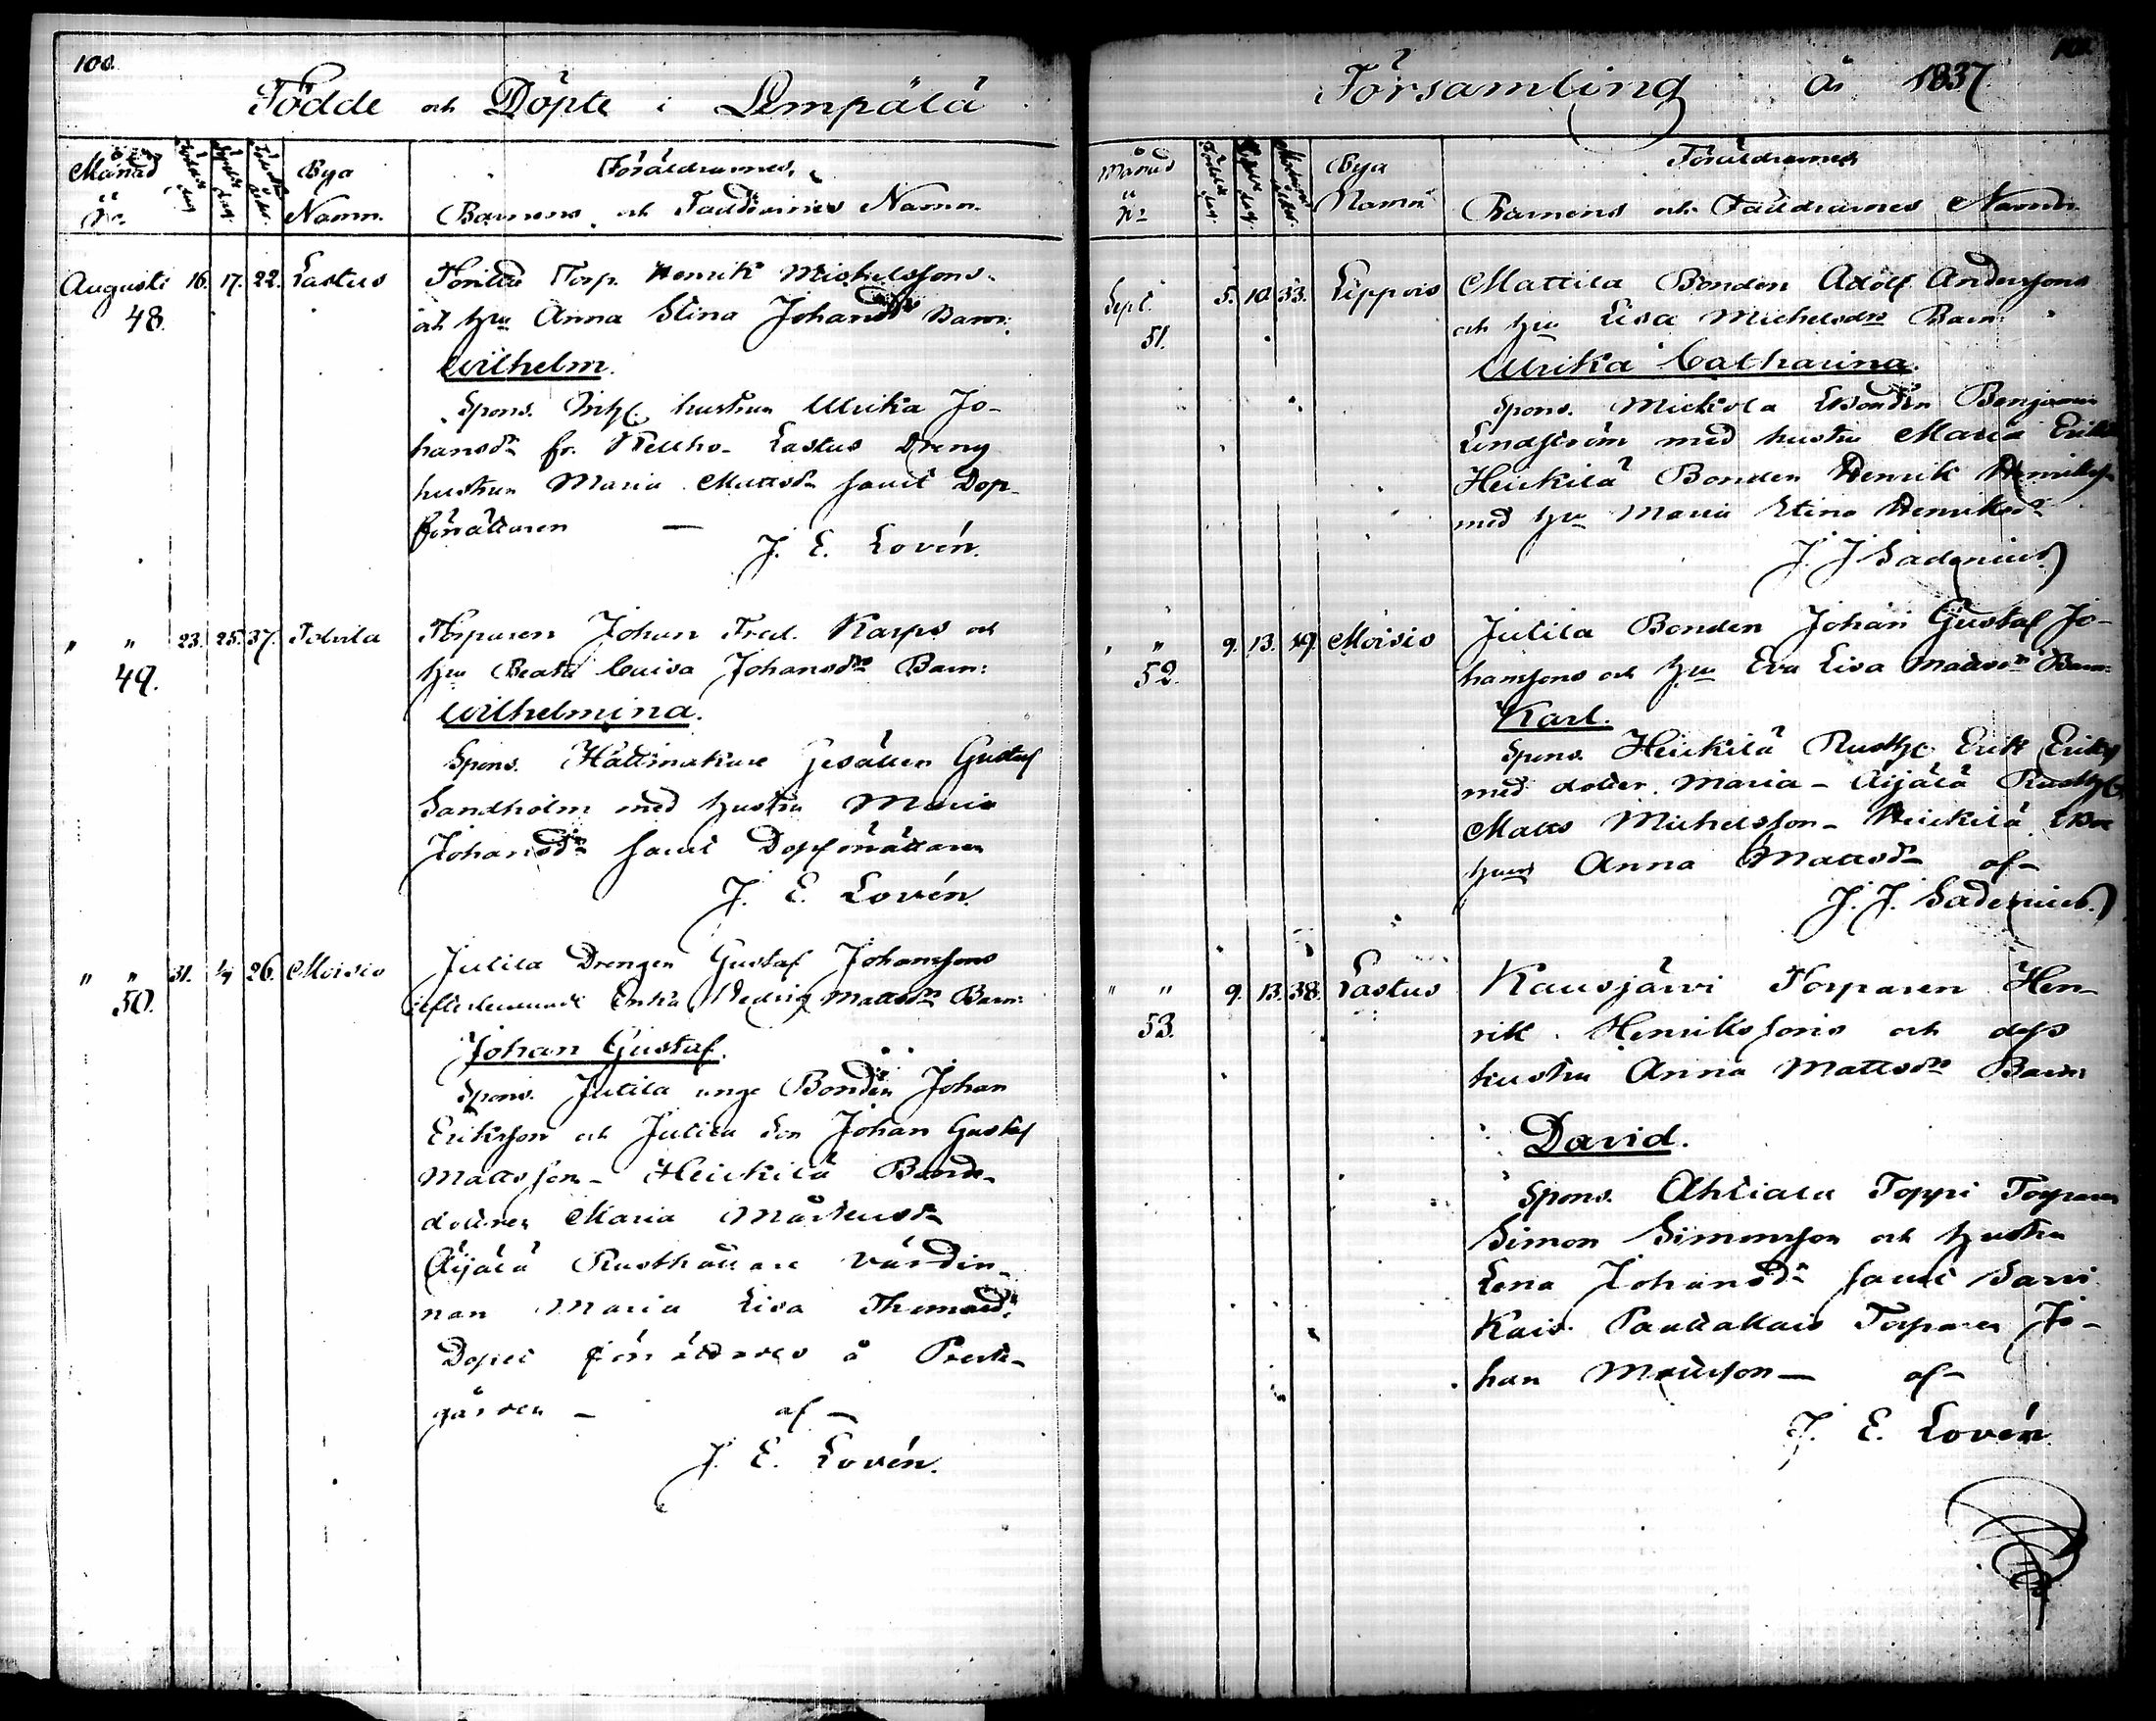 100.
Födde och Döpte i Lempälä
Månad
N:o
Bya
Namn.
Föräldrarnes,
Barnens och Faddrarnes Namn.
Augusti 16. 17. 22. Lastus
48.
Torp. Henrik Michelssons
och hu Anna Stina Johansdr Barn:
Wilhelm.
Spons. hustrun Ulrika Jo-
hansdr fr. Lastus Dreng
hustrun Maria Mattsdr samt Dop
förrättaren —
J. E. Lovén.
" " 23. 25. 37.
49.
Torparen Johan Fred. Karps och
hu Beata Luisa Johansdr Barn:
Wilhelmina.
Spons. Hattmakare Gesällen Gustaf
Sandholm med hustru Maria
Johansdr samt Dopförrättaren
J. E. Lovén.
" " 31. 1/9 26. Moisio
50.
Jutila Drengen Gustaf Johanssons
efterlemnade Enka Hedvig Mattsdr Barn:
Johan Gustaf.
Spons. Jutila unge Bonden Johan
Eriksson och Jutila Son Johan Gustaf
Mattsson - Heickilä Bonde-
dottren Maria Mårtensdr
Äijälä Rusthållare värdin-
nan Maria Lisa Thomasdr
Dopet förrättades å Prest-
gården — af —
J. E. Lovén.
Församling År 1837
Månad
u
No
Bya
Namn
Föräldrarnes
Barnens och Faddrarnes Namn.
Sept. 5. 10. 33. Lippois
51.
Mattila Bonden Adolf Anderssons
och hu Lisa Michelsdr Barn:
Ulrika Catharina.
Spons. Mickola Bonden Benjamin
Lindström med hustru Maria
Heickilä Bonden Henrik
med hu Maria Stina Henriksdr
J. J. Sadenius
" " 9. 13. 19. Moisio
52.
Jutila Bonden Johan Gustaf Jo-
hanssons och hu Eva Lisa Mattsdr Barn:
Karl.
Spons. Heickilä Rusth. Erik
med dotter Maria - Äijälä Rusth.
Matts Michelsson - Heickilä
Anna Mattsdr af -
J. J. Sadenius
" " 9. 13. 38. Lastus
53.
Kausjärvi Torparen Hen-
rik Henrikssons och dess
hustru Anna Mattsdr Barn
David.
Spons. Ahtiala Toppi Torparen
Simon Simonsson och hustru
Lena Johansdr samt
Torparen Jo-
han — af —
J. E. Lovén